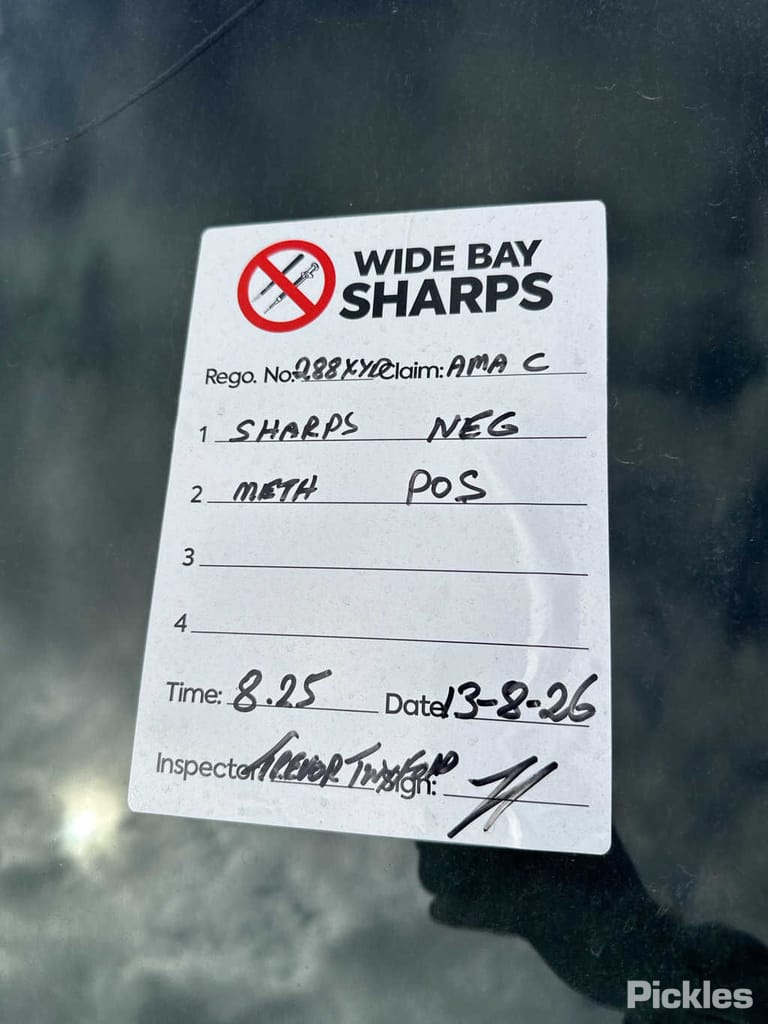 WIDE BAY
SHARPS
Rego. No: 288XYD Claim: AMA C
1 SHARPS NEG
2 METH POS
3
4
Time: 8.25 Date 13-8-26
Inspector: TREVOR TWYFORD Sign:
Pickles